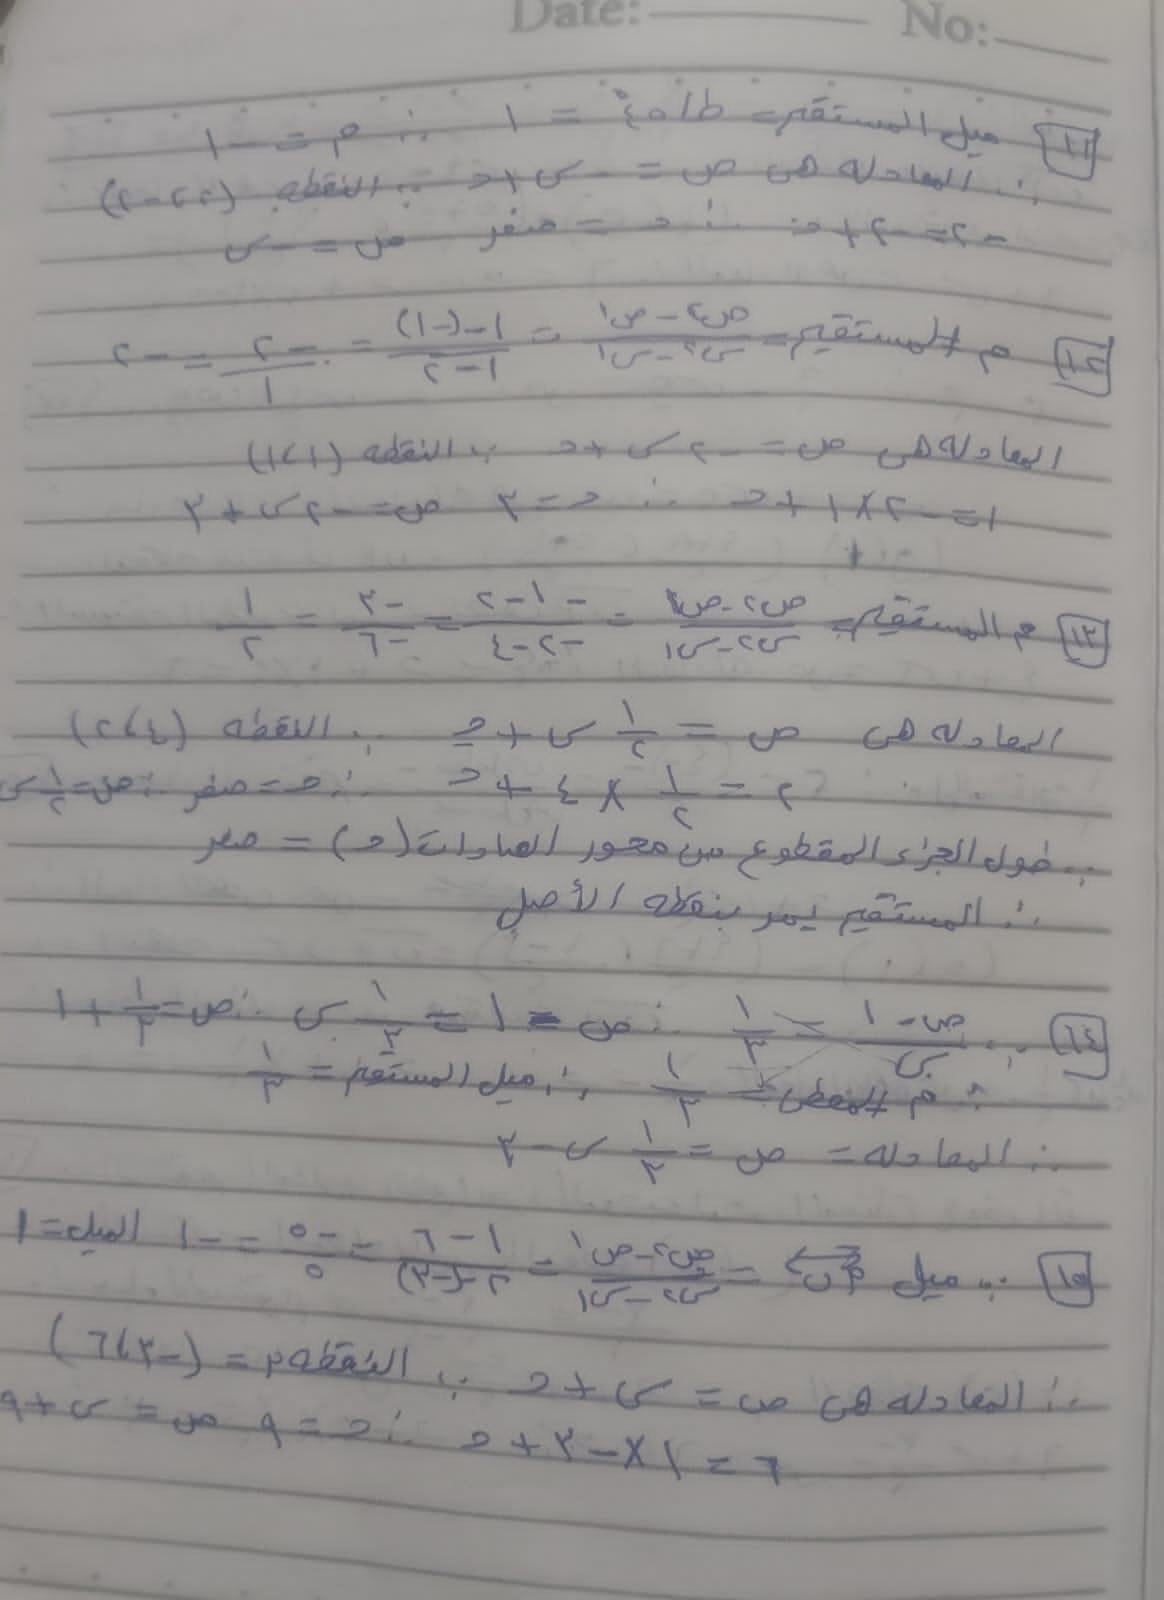 Date: No:
١١ ميل المستقيم = طا ٤٥ = ١ ∴ م = -١
∴ المعادله هى ص = -س + حـ ∵ النقطه (٢، -٢)
-٢ = -٢ + حـ ∴ حـ = صفر ص = -س
١٢ م المستقيم = (ص٢ - ص١)/(س٢ - س١) = (١ - (-١))/(١ - ٢) = ٢/-١ = -٢
المعادله هى ص = -٢س + حـ ∵ النقطه (١، ١)
١ = -٢ × ١ + حـ ∴ حـ = ٣ ص = -٢س + ٣
١٣ م المستقيم = (ص٢ - ص١)/(س٢ - س١) = (-١ - ٢)/(-٢ - ٤) = -٣/-٦ = ١/٢
المعادله هى ص = ١/٢ س + حـ ∵ النقطه (٤، ٢)
٢ = ١/٢ × ٤ + حـ ∴ حـ = صفر ∴ ص = ١/٢ س
∵ طول الجزء المقطوع من محور الصادات (حـ) = صفر
∴ المستقيم يمر بنقطه الأصل
١٤ ∵ (ص - ١)/س = ١/٣ ∴ ص - ١ = ١/٣ س ∴ ص = ١/٣ + ١
م المعطى = ١/٣ ∴ ميل المستقيم = ١/٣
∴ المعادله = ص = ١/٣ س - ٣
١٥ ∵ ميل = (ص٢ - ص١)/(س٢ - س١) = (١ - ٦)/(٢ - (-٣)) = -٥/٥ = -١ الميل = ١
∴ المعادله هى ص = س + حـ ∵ النقطه م = (-٣، ٦)
٦ = ١ × -٣ + حـ ∴ حـ = ٩ ص = س + ٩